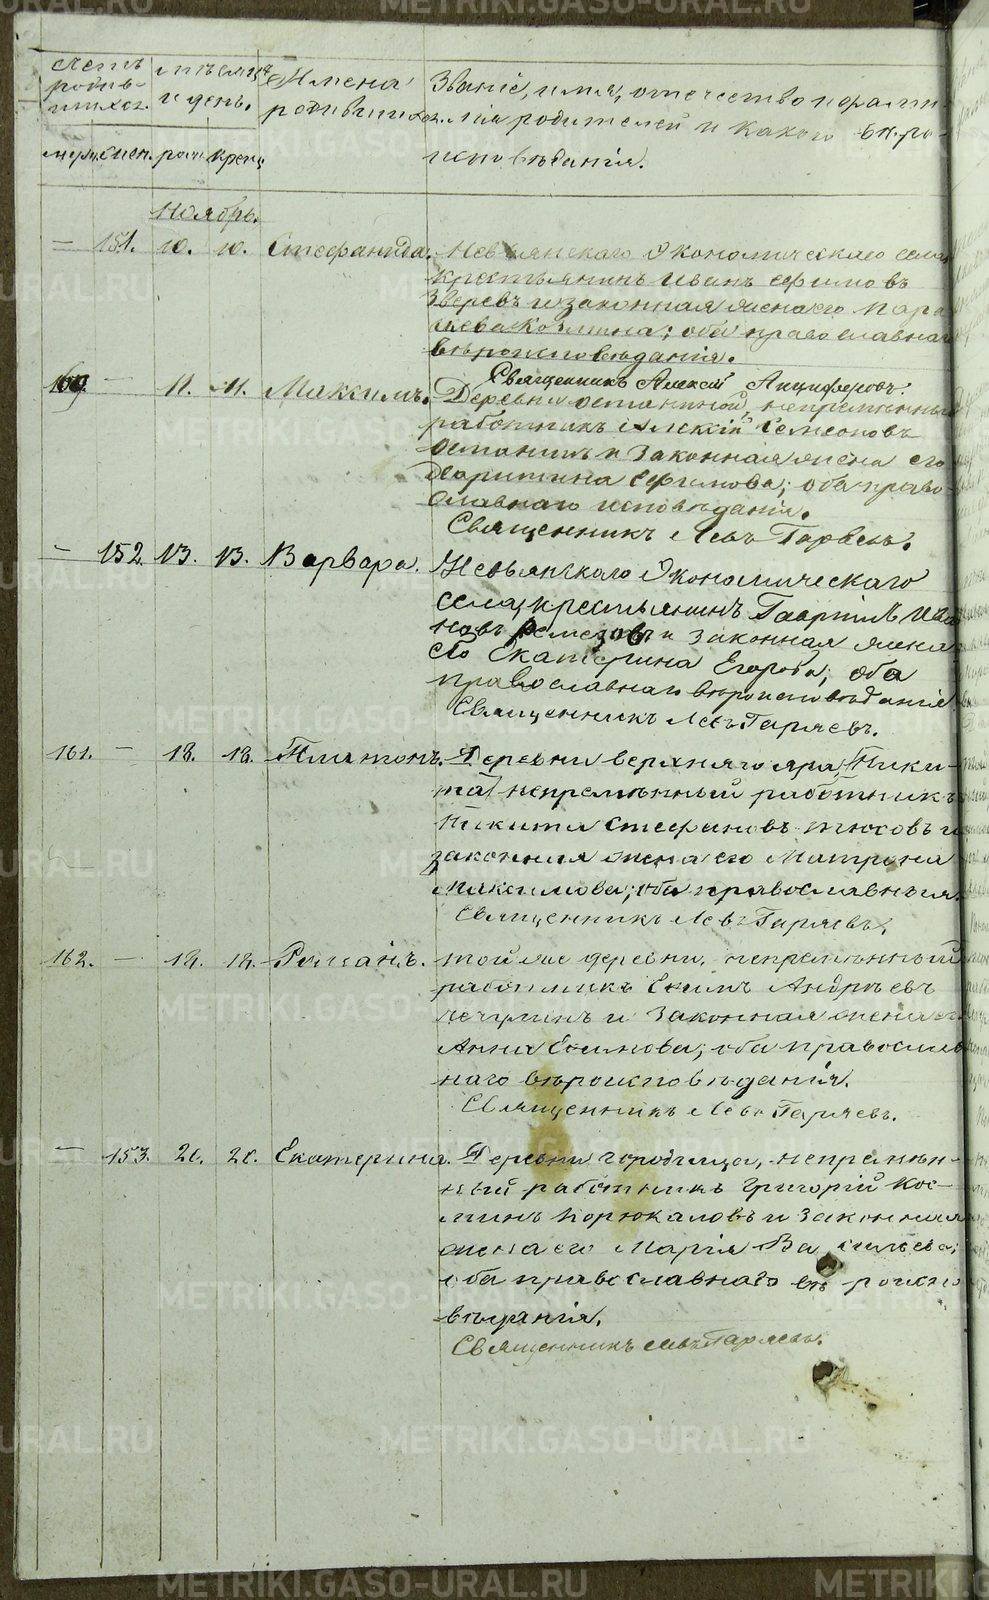 Счетъ
родив-
шихся.
мѣсяцъ
и день.
Имена
родившихся.
Званіе, имя, отчество и фами-
лія родителей и какого вѣро-
исповѣданія.
муж. жен. рож. крещ.
Ноябрь.
— 151. 10. 10. Стефанида. Невьянскаго Экономическаго села
крестьянинъ Иванъ Ефимовъ
Зверевъ и законная жена его Пара
скева Козмина; оба православнаго
вѣроисповѣданія.
Священникъ Алексей Анциферовъ.
160. — 11. 11. Максимъ. Деревни Останиной, непремѣнный
работникъ Алексій Семеоновъ
Останинъ и законная жена его
Харитина Ефимова; оба право-
славнаго исповѣданія.
Священникъ Левъ Гаряевъ.
— 152. 13. 13. Варвара. Невьянскаго Экономическаго
села, крестьянинъ Гавріилъ Ива
новъ Ремезовъ и законная жена
его Екатерина Егорова; оба
православнаго вѣроисповѣданія
Священникъ Левъ Гаряевъ.
161. — 18. 18. Платонъ. Деревни верхняго яра, (Ники-
та) непремѣнный работникъ
Никита Стефановъ и
законная жена его Матрона
Максимова; оба православныя.
Священникъ Левъ Гаряевъ.
162. — 18. 18. Романъ. Той же деревни, непремѣнный
работникъ Екимъ Андрѣевъ
и законная жена его
Анна Екимова; оба православ
наго вѣроисповѣданія.
Священникъ Левъ Гаряевъ.
— 153. 20. 20. Екатерина. Деревни городища, непремѣн-
ный работникъ Григорій Кос-
минъ Корюкаловъ и законная
жена его Марія Васильева;
оба православнаго вѣроиспо
вѣданія.
Священникъ Левъ Гаряевъ.
METRIKI.GASO-URAL.RU